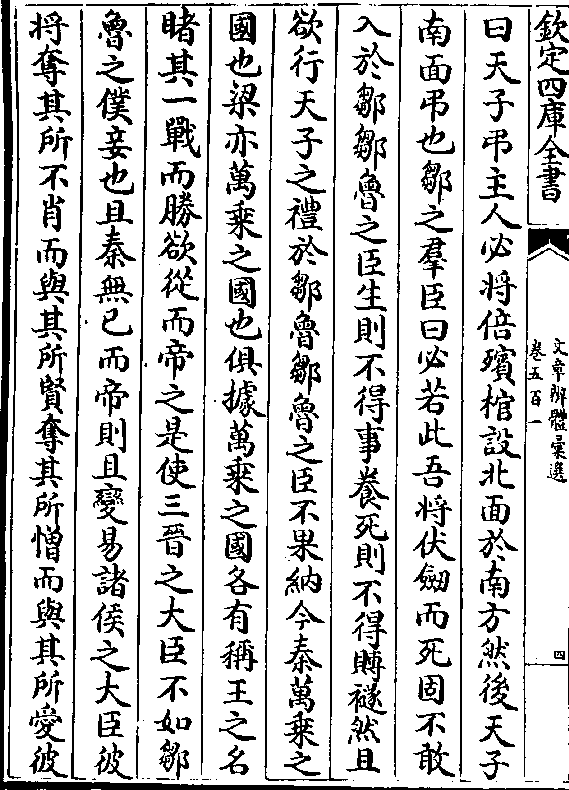 欽定四庫全書
文章辨體彙選
卷五百一
四
曰天子弔主人必将倍殯棺設北面於南方然後天子
南面弔也鄒之羣臣曰必若此吾将伏劒而死固不敢
入於鄒鄒魯之臣生則不得事養死則不得賻禭然且
欲行天子之禮於鄒魯鄒魯之臣不果納今秦萬乗之
國也梁亦萬乗之國也俱據萬乗之國各有稱王之名
睹其一戰而勝欲從而帝之是使三晉之大臣不如鄒
魯之僕妾也且秦無已而帝則且變易諸侯之大臣彼
将奪其所不肖而與其所賢奪其所憎而與其所愛彼